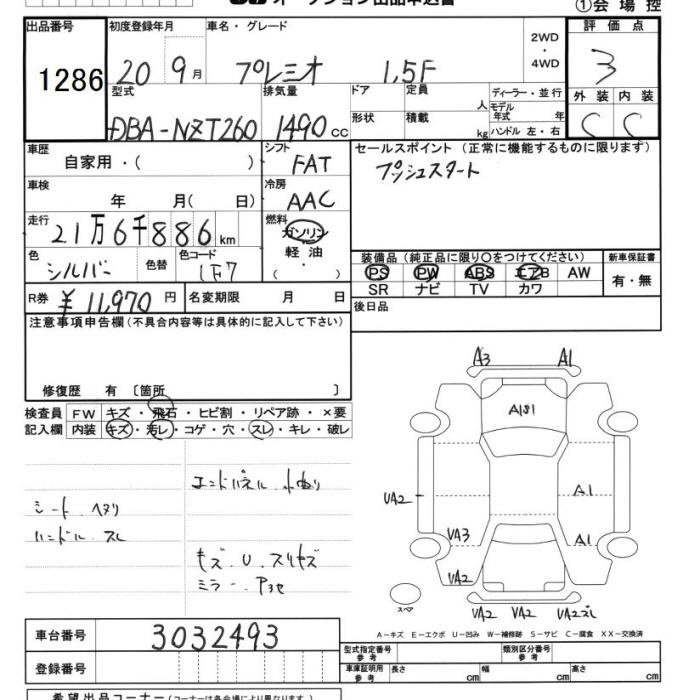 オークション出品申込書 ①会場控
出品番号 初度登録年月 車名・グレード 2WD・4WD 評価点
1286 20 9月 プレミオ 1.5F 3
型式 排気量 ドア 定員 人 ディーラー・並行 外装 内装
DBA-NZT260 1490cc 形状 積載 kg モデル年式 年 ハンドル 左・右 C C
車歴 自家用・( ) シフト FAT セールスポイント (正常に機能するものに限ります)
車検 年 月( 日) 冷房 AAC プッシュスタート
走行 21万6千886km 燃料 ガソリン
色 シルバー 色替 色コード 1F7 軽油 ( ・ )
装備品 (純正品に限り○をつけてください) 新車保証書
PS PW ABS エアB AW 有・無
SR ナビ TV カワ
R券 ¥11,970円 名変期限 月 日 後日品
注意事項申告欄(不具合内容等は具体的に記入して下さい)
修復歴 有 〔箇所 〕
検査員 FW キズ・飛石・ヒビ割・リペア跡・×要
記入欄 内装 キズ・汚レ・コゲ・穴・スレ・キレ・破レ
エンドパネル
シート ヘタリ
ハンドル スレ
キズ U スリキズ
ミラー
A3 A1
A1S1
UA2 A1
UA3 A1
UA2
スペア UA2 UA2 UA2スレ
A-キズ E-エクボ U-凹み W-補修跡 S-サビ C-腐食 XX-交換済
車台番号 3032493 型式指定番号 参考 類別区分番号 参考
登録番号 車庫証明用 参考 長さ cm 幅 cm 高さ cm
希望出品コーナー(コーナーは各会場により異なります。)